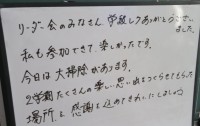 リーダー会のみなさん 学級レクありがとうござい
ました。
私も参加できて楽しかったです。
今日は大掃除があります。
2学期たくさんの楽しい思い出をつくらせてもらった
場所を感謝を込めてきれいにしましょう